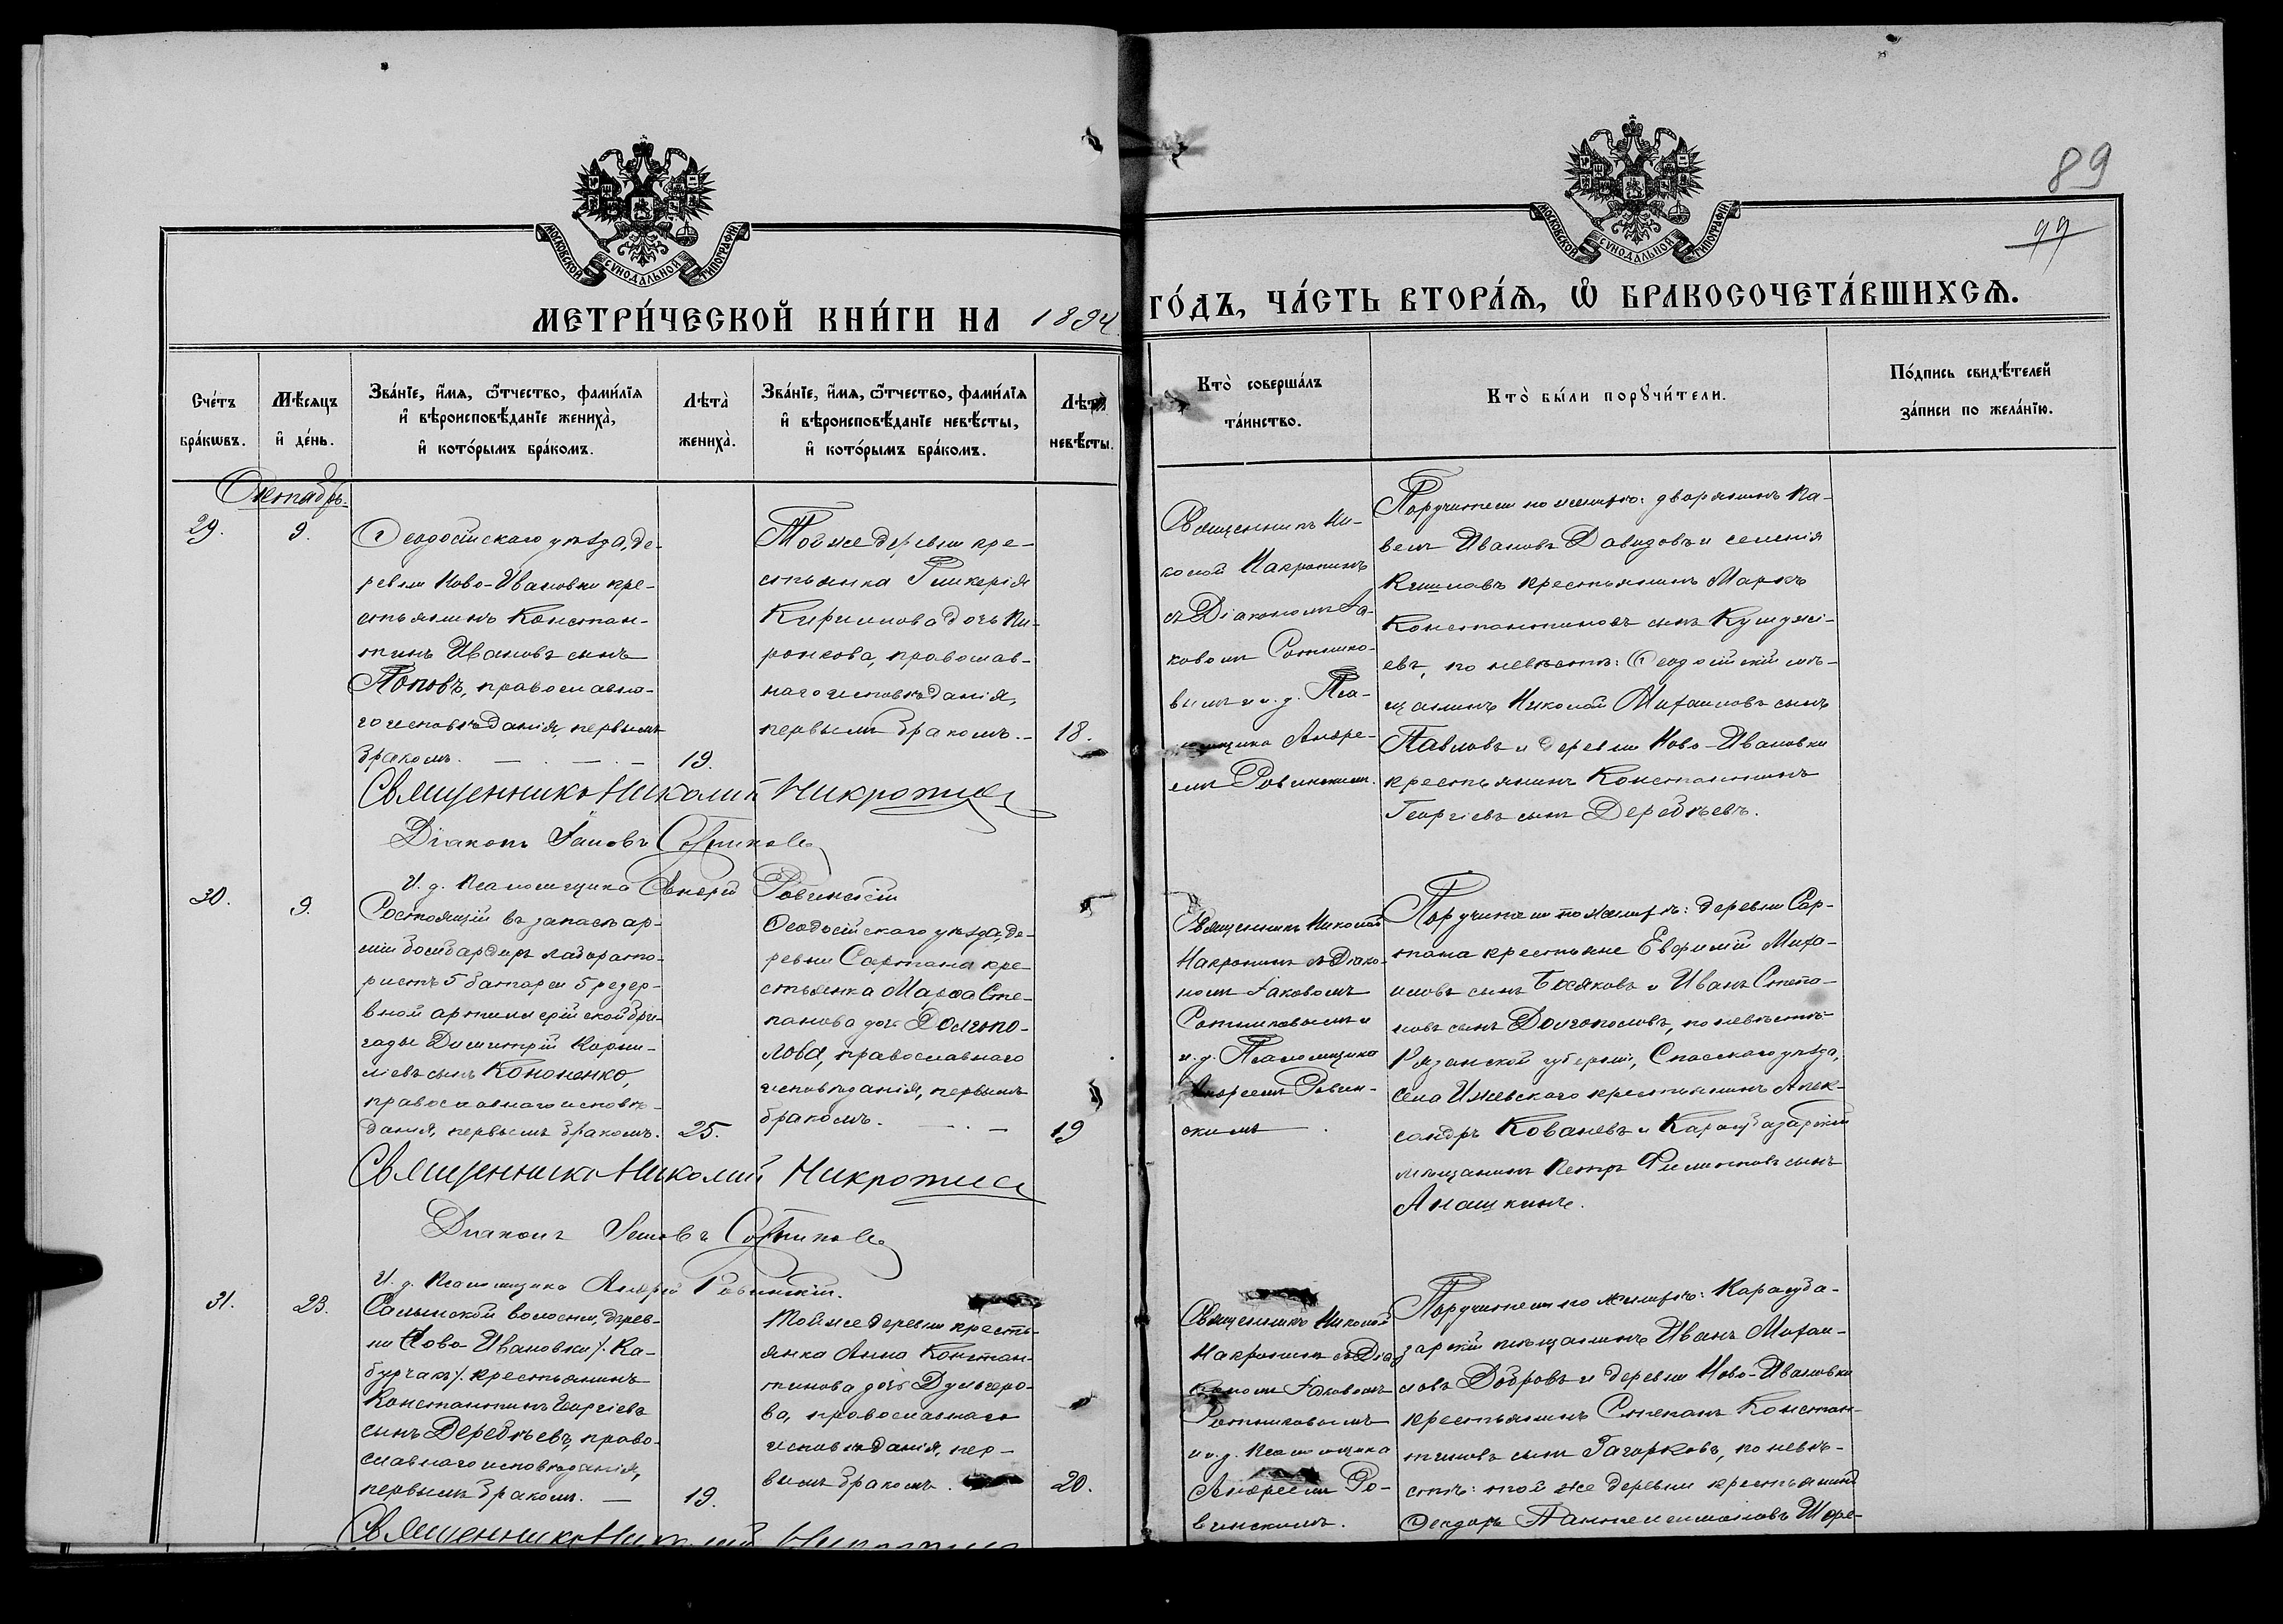 89
99
МОСКОВСКОЙ СѴНОДАЛЬНОЙ ТИПОГРАФІИ
МОСКОВСКОЙ СѴНОДАЛЬНОЙ ТИПОГРАФІИ
МЕТРИ́ЧЕСКОЙ КНИ́ГИ НА 1894 ГО́ДЪ, ЧА́СТЬ ВТОРА́Ѧ, Ѡ҆ БРАКОСОЧЕТА́ВШИХСѦ.
Сче́тъ
бра́кѡвъ.
Мѣ́сѧцъ
и҆ де́нь.
Зва́нїе, и҆́мѧ, ѻ҆́тчество, фами́лїѧ
и҆ вѣроисповѣ́данїе жениха̀,
и҆ кото́рымъ бра́комъ.
Лѣта̀
жениха̀.
Зва́нїе, и҆́мѧ, ѻ҆́тчество, фами́лїѧ
и҆ вѣроисповѣ́данїе невѣ́сты,
и҆ кото́рымъ бра́комъ.
Лѣта̀
невѣ́сты.
Кто̀ соверша́лъ
та́инство.
Кто̀ бы́ли порꙋчи́тели.
По́дпись свидѣ́телей
за́писи по жела́нїю.
Октябрь.
29.
9.
Ѳеодосійскаго уѣзда, де-
ревни Ново-Ивановки кре-
стьянинъ Констан-
тинъ Ивановъ сынъ
Поповъ, православна-
го исповѣданія, первымъ
бракомъ.
19.
Той же деревни кре-
стьянка Гликерія
Кириллова дочь Ки-
рокова, православ-
наго исповѣданія,
первымъ бракомъ. –
18.
Священникъ Ни-
колай Макротинъ
съ Діакономъ Іа-
ковомъ Сотнико-
вымъ и и. д. Пса-
ломщика Андре-
емъ Ровинскимъ.
Поручители по женихѣ: дворянинъ Па-
велъ Ивановъ Давыдовъ и селенія
Кишлавъ крестьянинъ Маркъ
Константиновъ сынъ
евъ, по невѣстѣ: Ѳеодосійскій мѣ-
щанинъ Николай Михаиловъ сынъ
Павловъ и деревни Ново-Ивановки
крестьянинъ Константинъ
Георгіевъ сынъ Деребѣевъ.
Священникъ Николай Макротинъ
Діаконъ Іаковъ Сотниковъ
И. д. Псаломщика Андрей Ровинскій
30.
9.
Состоящій въ запасѣ ар-
міи бомбардиръ лаборато-
ристъ 5 батареи 5 резер-
вной артиллерійской бри-
гады Димитрій Корни-
ліевъ сынъ Кононенко,
православнаго исповѣ-
данія, первымъ бракомъ.
25.
Ѳеодосійскаго уѣзда, де-
ревни Сартана кре-
стьянка Марѳа Сте-
панова дочь Долгопо-
лова, православнаго
исповѣданія, первымъ
бракомъ.
19
Священникъ Николай
Макротинъ съ Діако-
номъ Іаковомъ
Сотниковымъ и
и. д. Псаломщика
Андреемъ Ровин-
скимъ
Поручители по женихѣ: деревни Сар-
тана крестьяне Евфимій Миха-
иловъ сынъ Босяковъ и Иванъ Степа-
новъ сынъ Долгополовъ, по невѣстѣ:
Рязанской губерніи, Спасскаго уѣзда,
села Ижевскаго крестьянинъ Алек-
сандръ Кованевъ и Карасубазарскій
мѣщанинъ Петръ Филипповъ сынъ
Анашкинъ.
Священникъ Николай Макротинъ
Діаконъ Іаковъ Сотниковъ
И. д. Псаломщика Андрей Ровинскій.
31.
23.
Салынской волости, дерев-
ни Ново-Ивановки /Ка-
бурчакъ/ крестьянинъ
Константинъ Георгіевъ
сынъ Деребѣевъ, право-
славнаго исповѣданія,
первымъ бракомъ. –
19.
Той же деревни кресть-
янка Анна Констан-
тинова дочь Дульгеро-
ва, православнаго
исповѣданія, пер-
вымъ бракомъ.
20.
Священникъ Николай
Макротинъ съ Діа-
кономъ Іаковомъ
Сотниковымъ
и и. д. Псаломщика
Андреемъ Ро-
винскимъ.
Поручители по женихѣ: Карасуба-
зарскій мѣщанинъ Иванъ Михаи-
ловъ Добровъ и деревни Ново-Ивановки
крестьянинъ Степанъ Констан-
тиновъ сынъ Загорковъ, по невѣ-
стѣ: той же деревни крестьянинъ
Ѳеодоръ Пантелеимоновъ Шоре-
Священникъ Николай Макротинъ